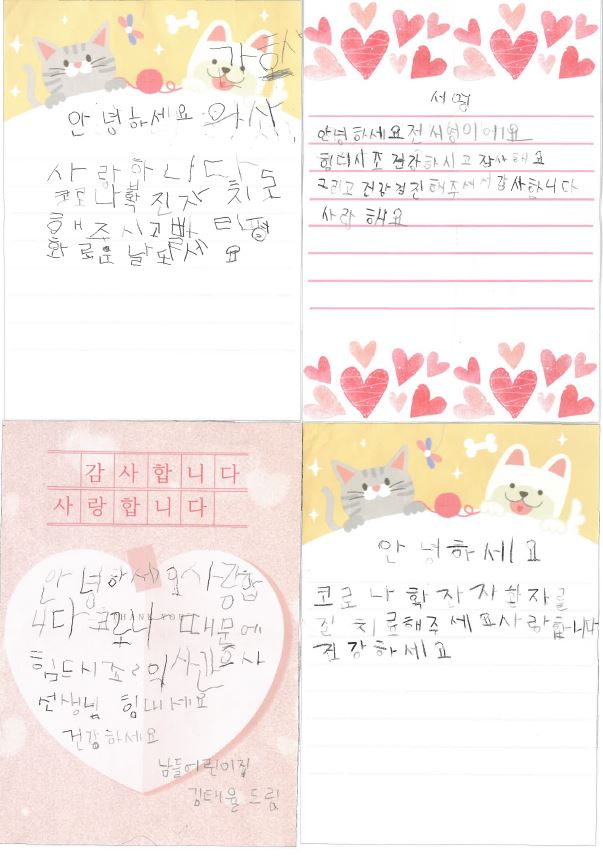 감사
안녕하세요 의사
사랑하니다
코로나확진자 치료
해주시고빨리평
화로운날또세요
서영
안녕하세요전서영이에요
힘데시조건강하시고감사해요
그리고건강검진해주셔서감사합니다
사랑해요
감사합니다
사랑합니다
안녕하세요사랑합
니다코로나때문에
THANK YOU
힘드시조의사간호사
선생님힘내세요
건강하세요
남들어린이집
김태율드림
안녕하세요
코로나확진자환자를
잘치료해주세요사랑합니다
건강하세요